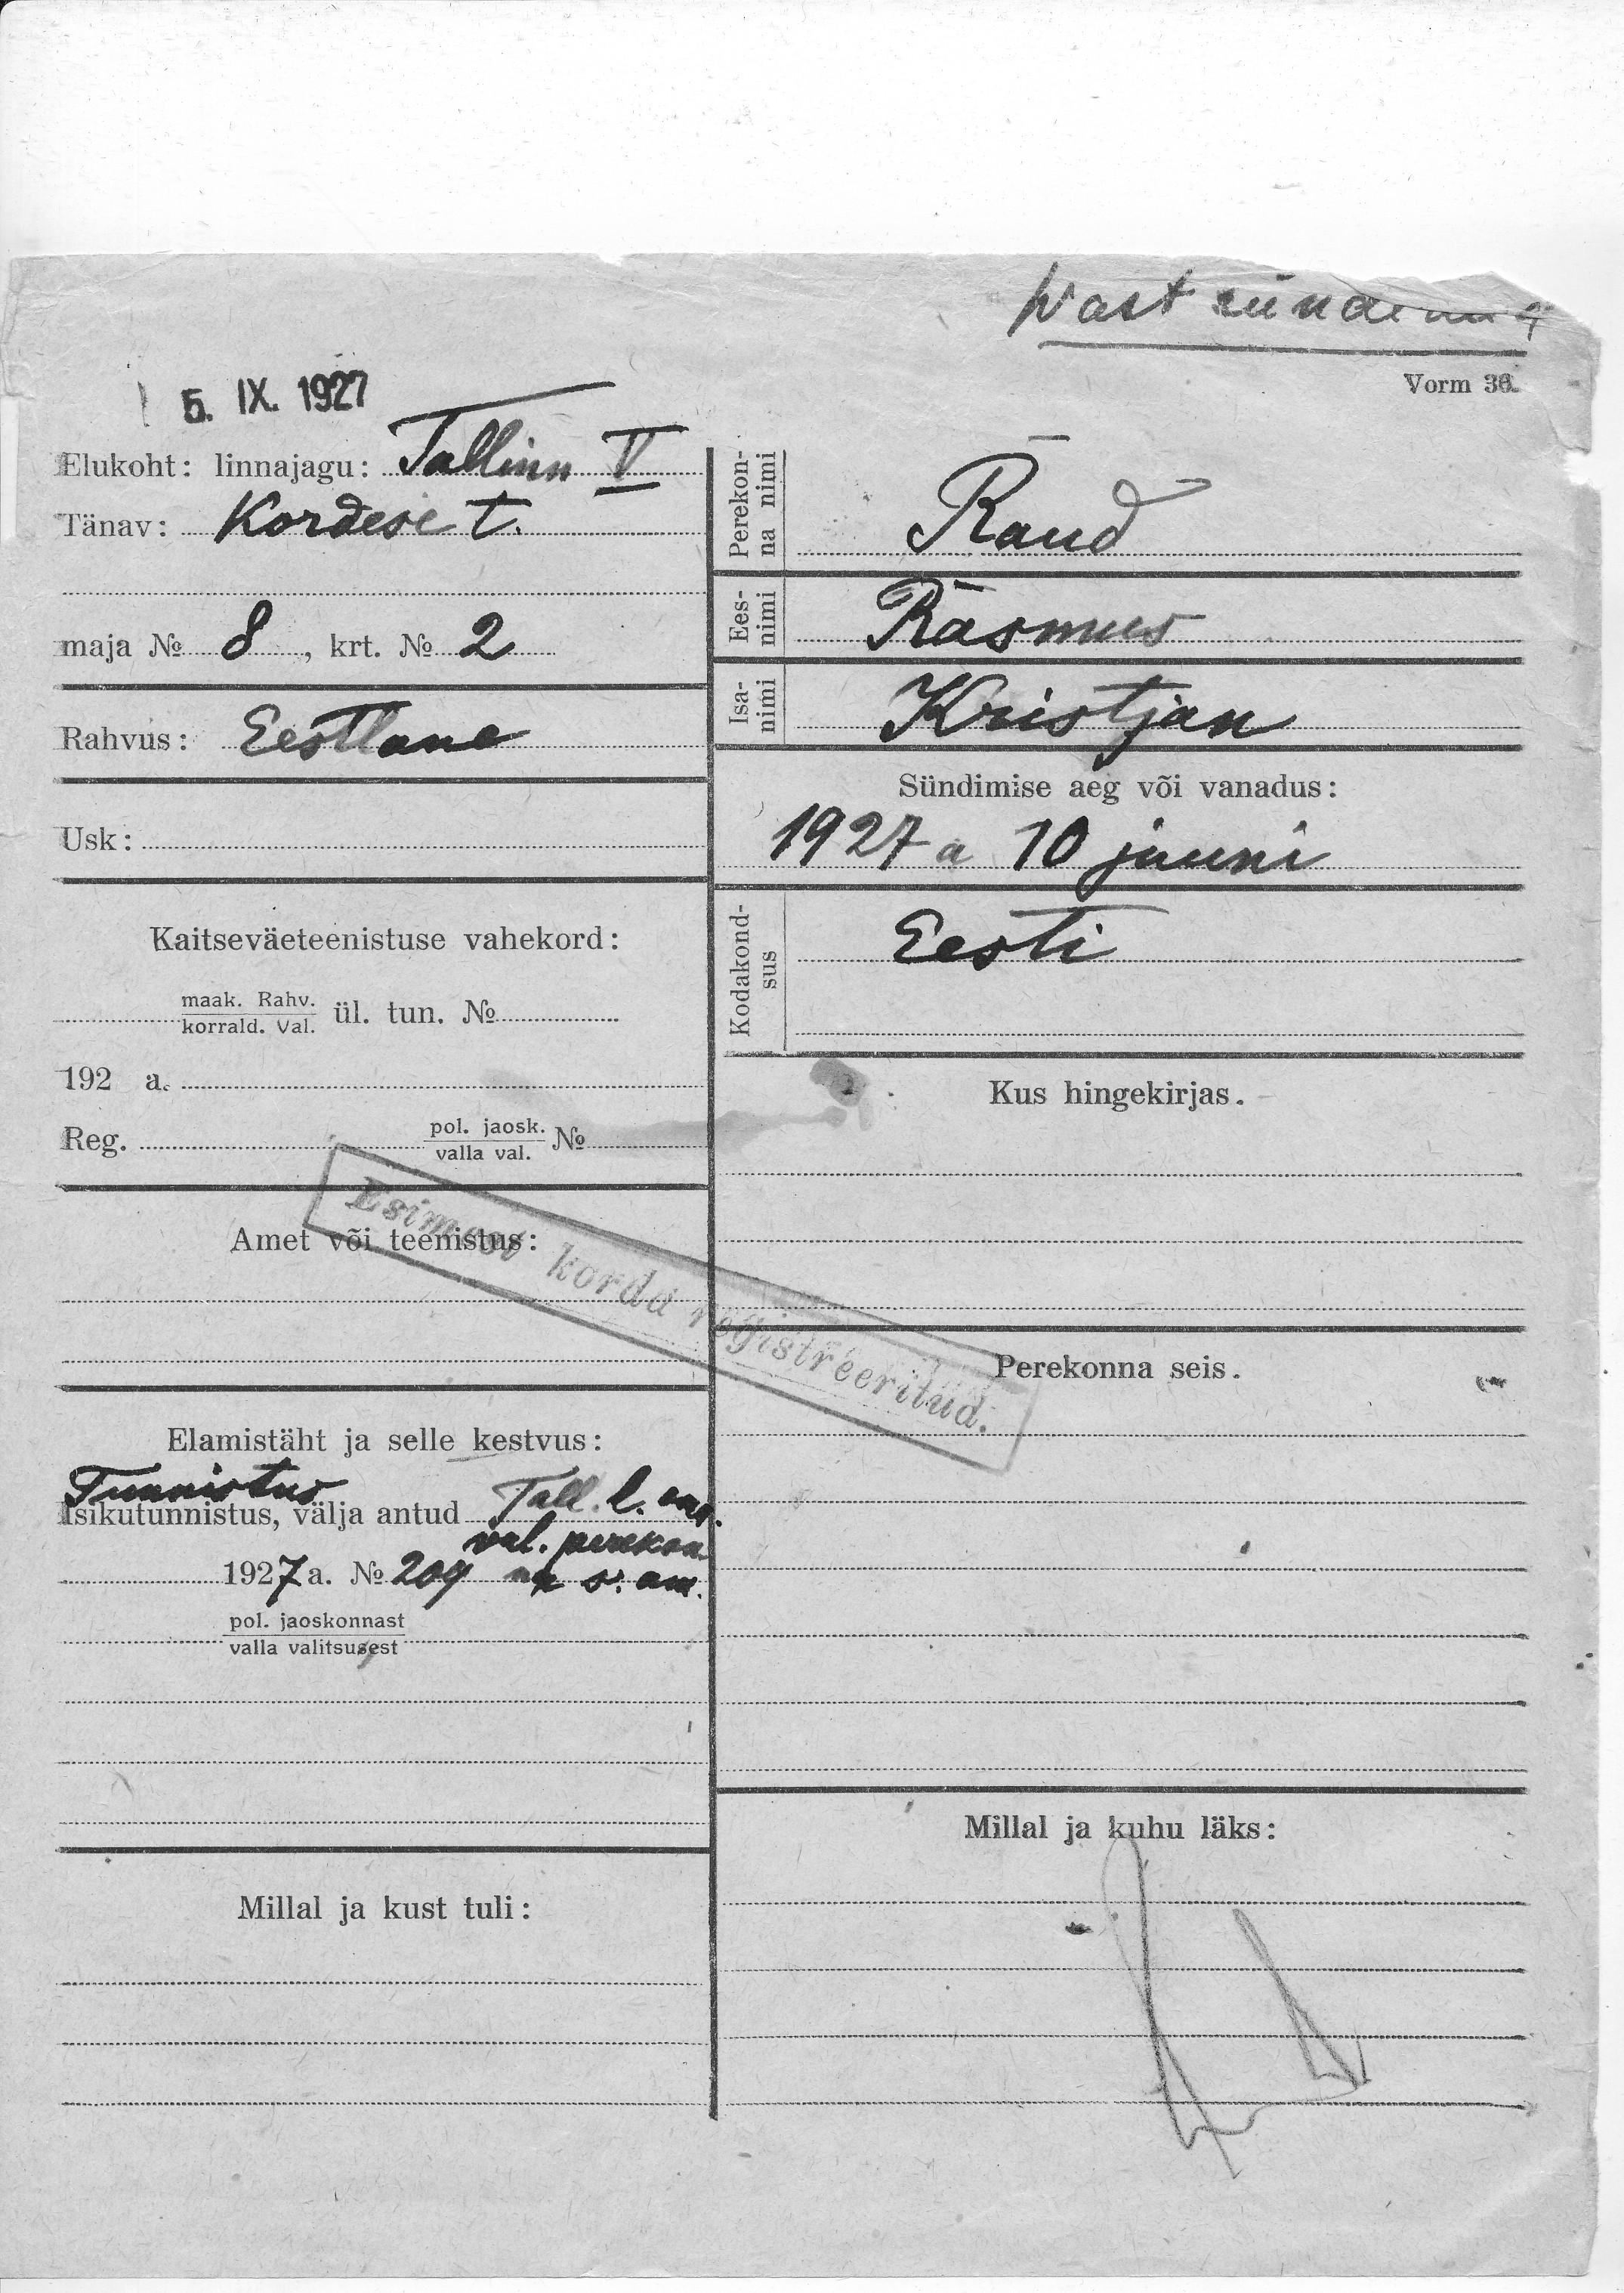 Wastsündinud
Vorm 36.
5. IX. 1927
Elukoht: linnajagu: Tallinn V
Tänav: Kordese t.
maja № 8, krt. № 2
Rahvus: Eestlane
Usk:
Kaitseväeteenistuse vahekord:
maak. Rahv.
korrald. Val. ül. tun. №
192 a.
Reg. pol. jaosk. №
valla val.
Amet või teenistus:
Elamistäht ja selle kestvus:
Tunnistus
Isikutunnistus, välja antud Tall. l.
val. perekon
1927 a. № 209 na s. am.
pol. jaoskonnast
valla valitsusest
Millal ja kust tuli:
Perekon-
na nimi
Raud
Ees-
nimi
Rasmus
Isa-
nimi
Kristjan
Sündimise aeg või vanadus:
1927 a 10 juuni
Kodakond-
sus
Eesti
Kus hingekirjas.
Esimest korda registreeritud.
Perekonna seis.
Millal ja kuhu läks: